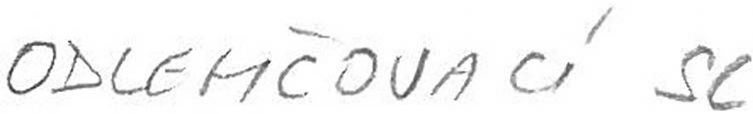 ODLEHČOVACÍ SL